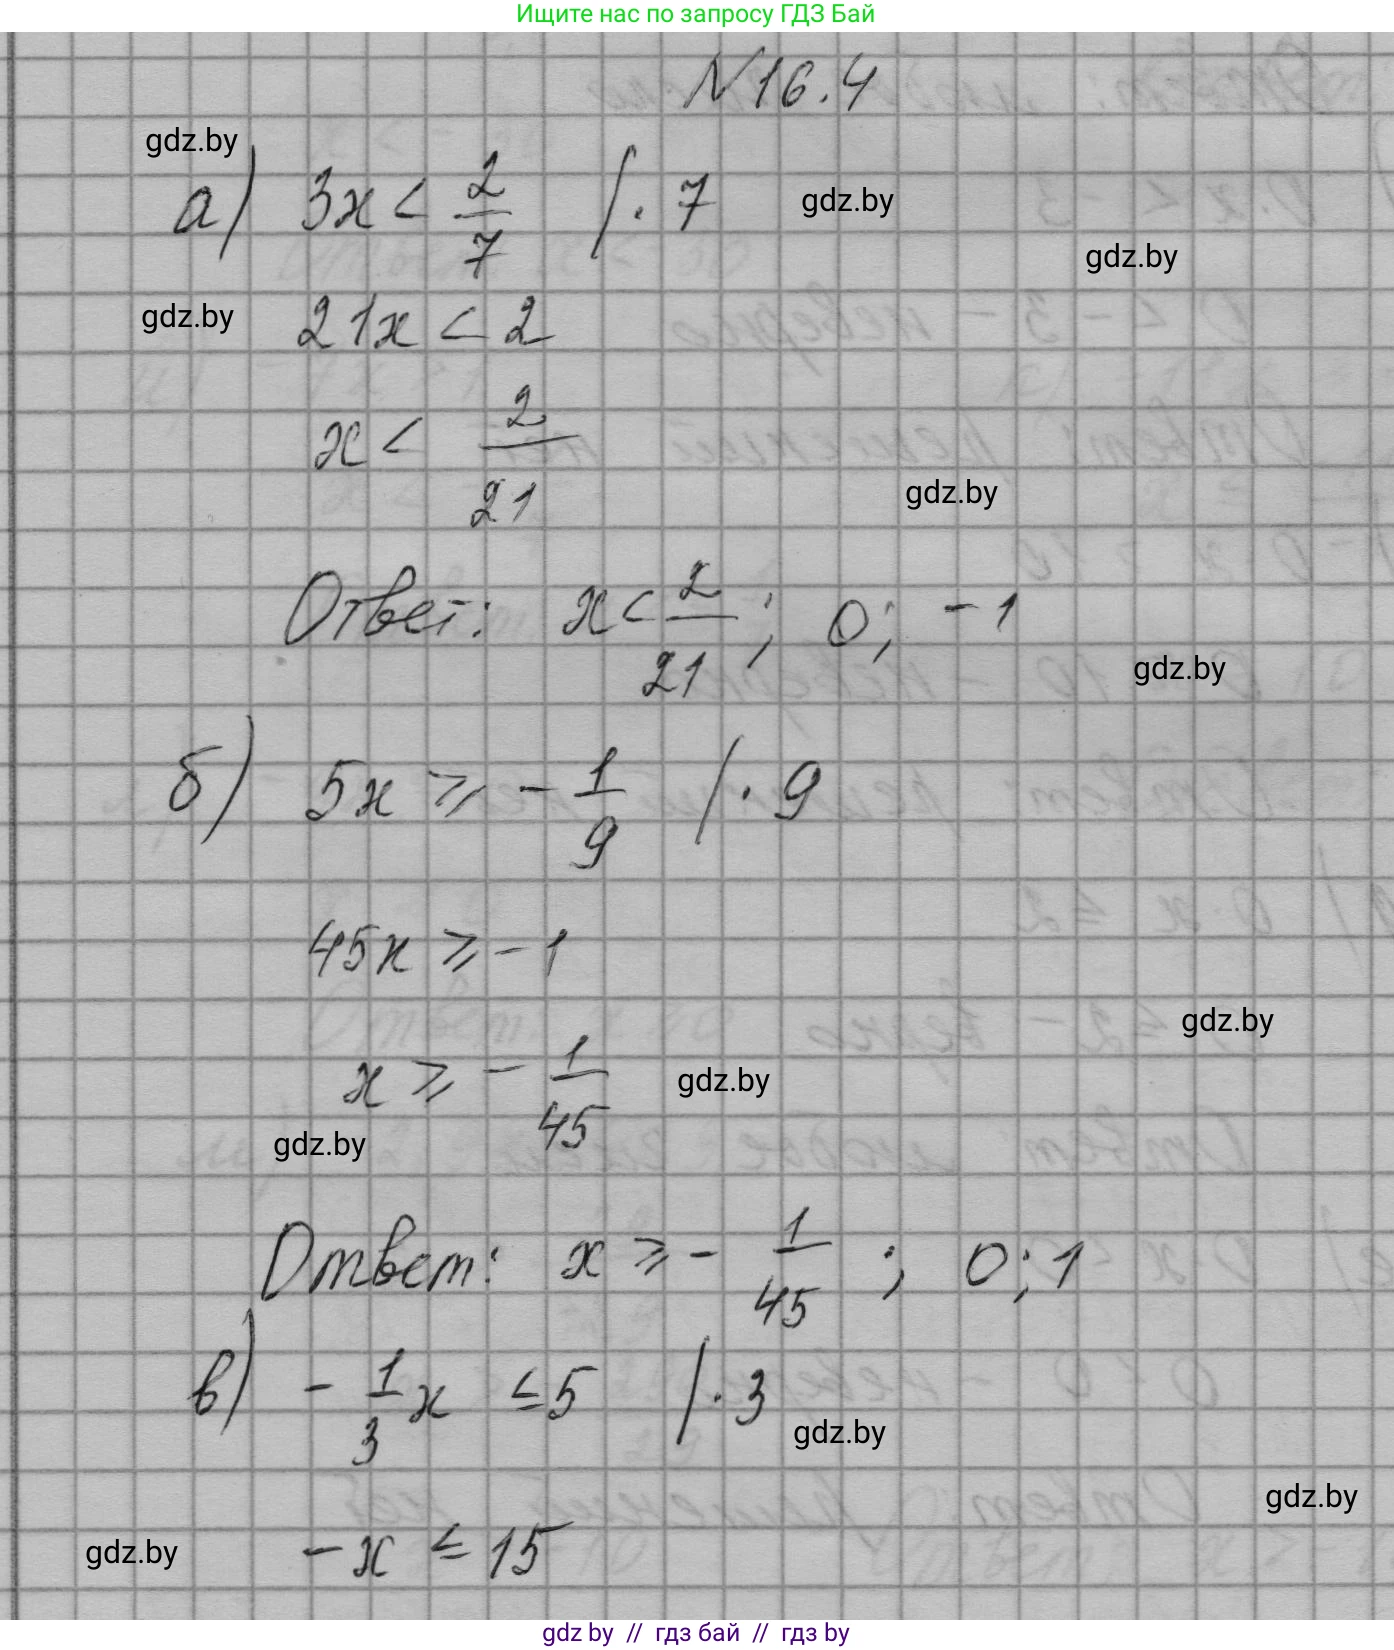 Ищите нас по запросу ГДЗ Бай
№16.4
gdz.by
а) 3x < 2/7 | · 7
gdz.by
gdz.by
gdz.by
21x < 2
x < 2/21
gdz.by
Ответ: x < 2/21; 0; -1
gdz.by
б) 5x ⩾ - 1/9 | · 9
45x ⩾ -1
gdz.by
x ⩾ - 1/45
gdz.by
gdz.by
Ответ: x ⩾ - 1/45; 0; 1
в) - 1/3 x ≤ 5 | · 3
gdz.by
gdz.by
gdz.by
-x ≤ 15
gdz by // гдз бай // гдз by